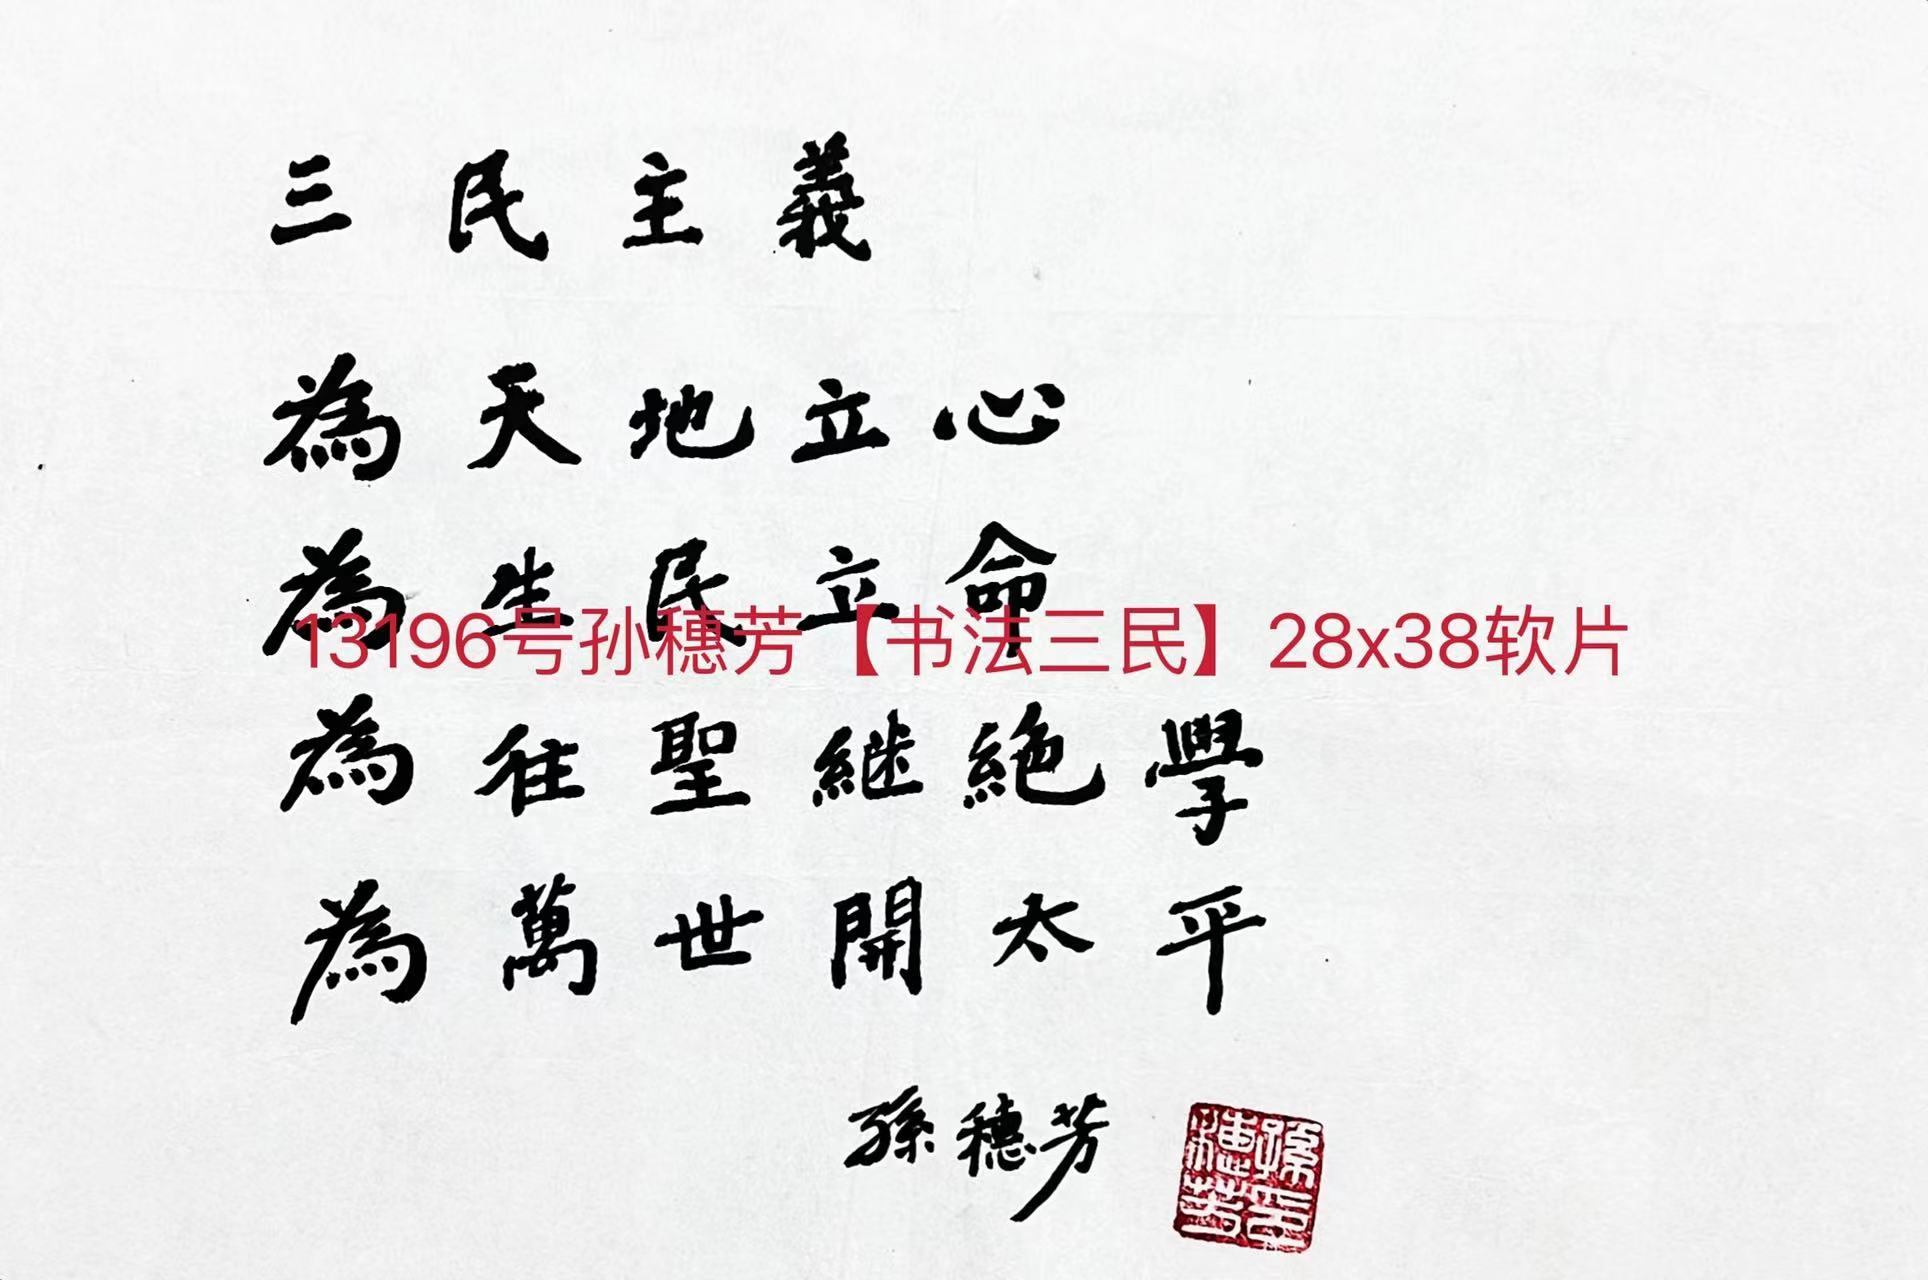 三民主義
為天地立心
為生民立命
13196号孙穗芳【书法三民】28x38软片
為往聖継絶學
為萬世開太平
孫穗芳
孫穗芳印